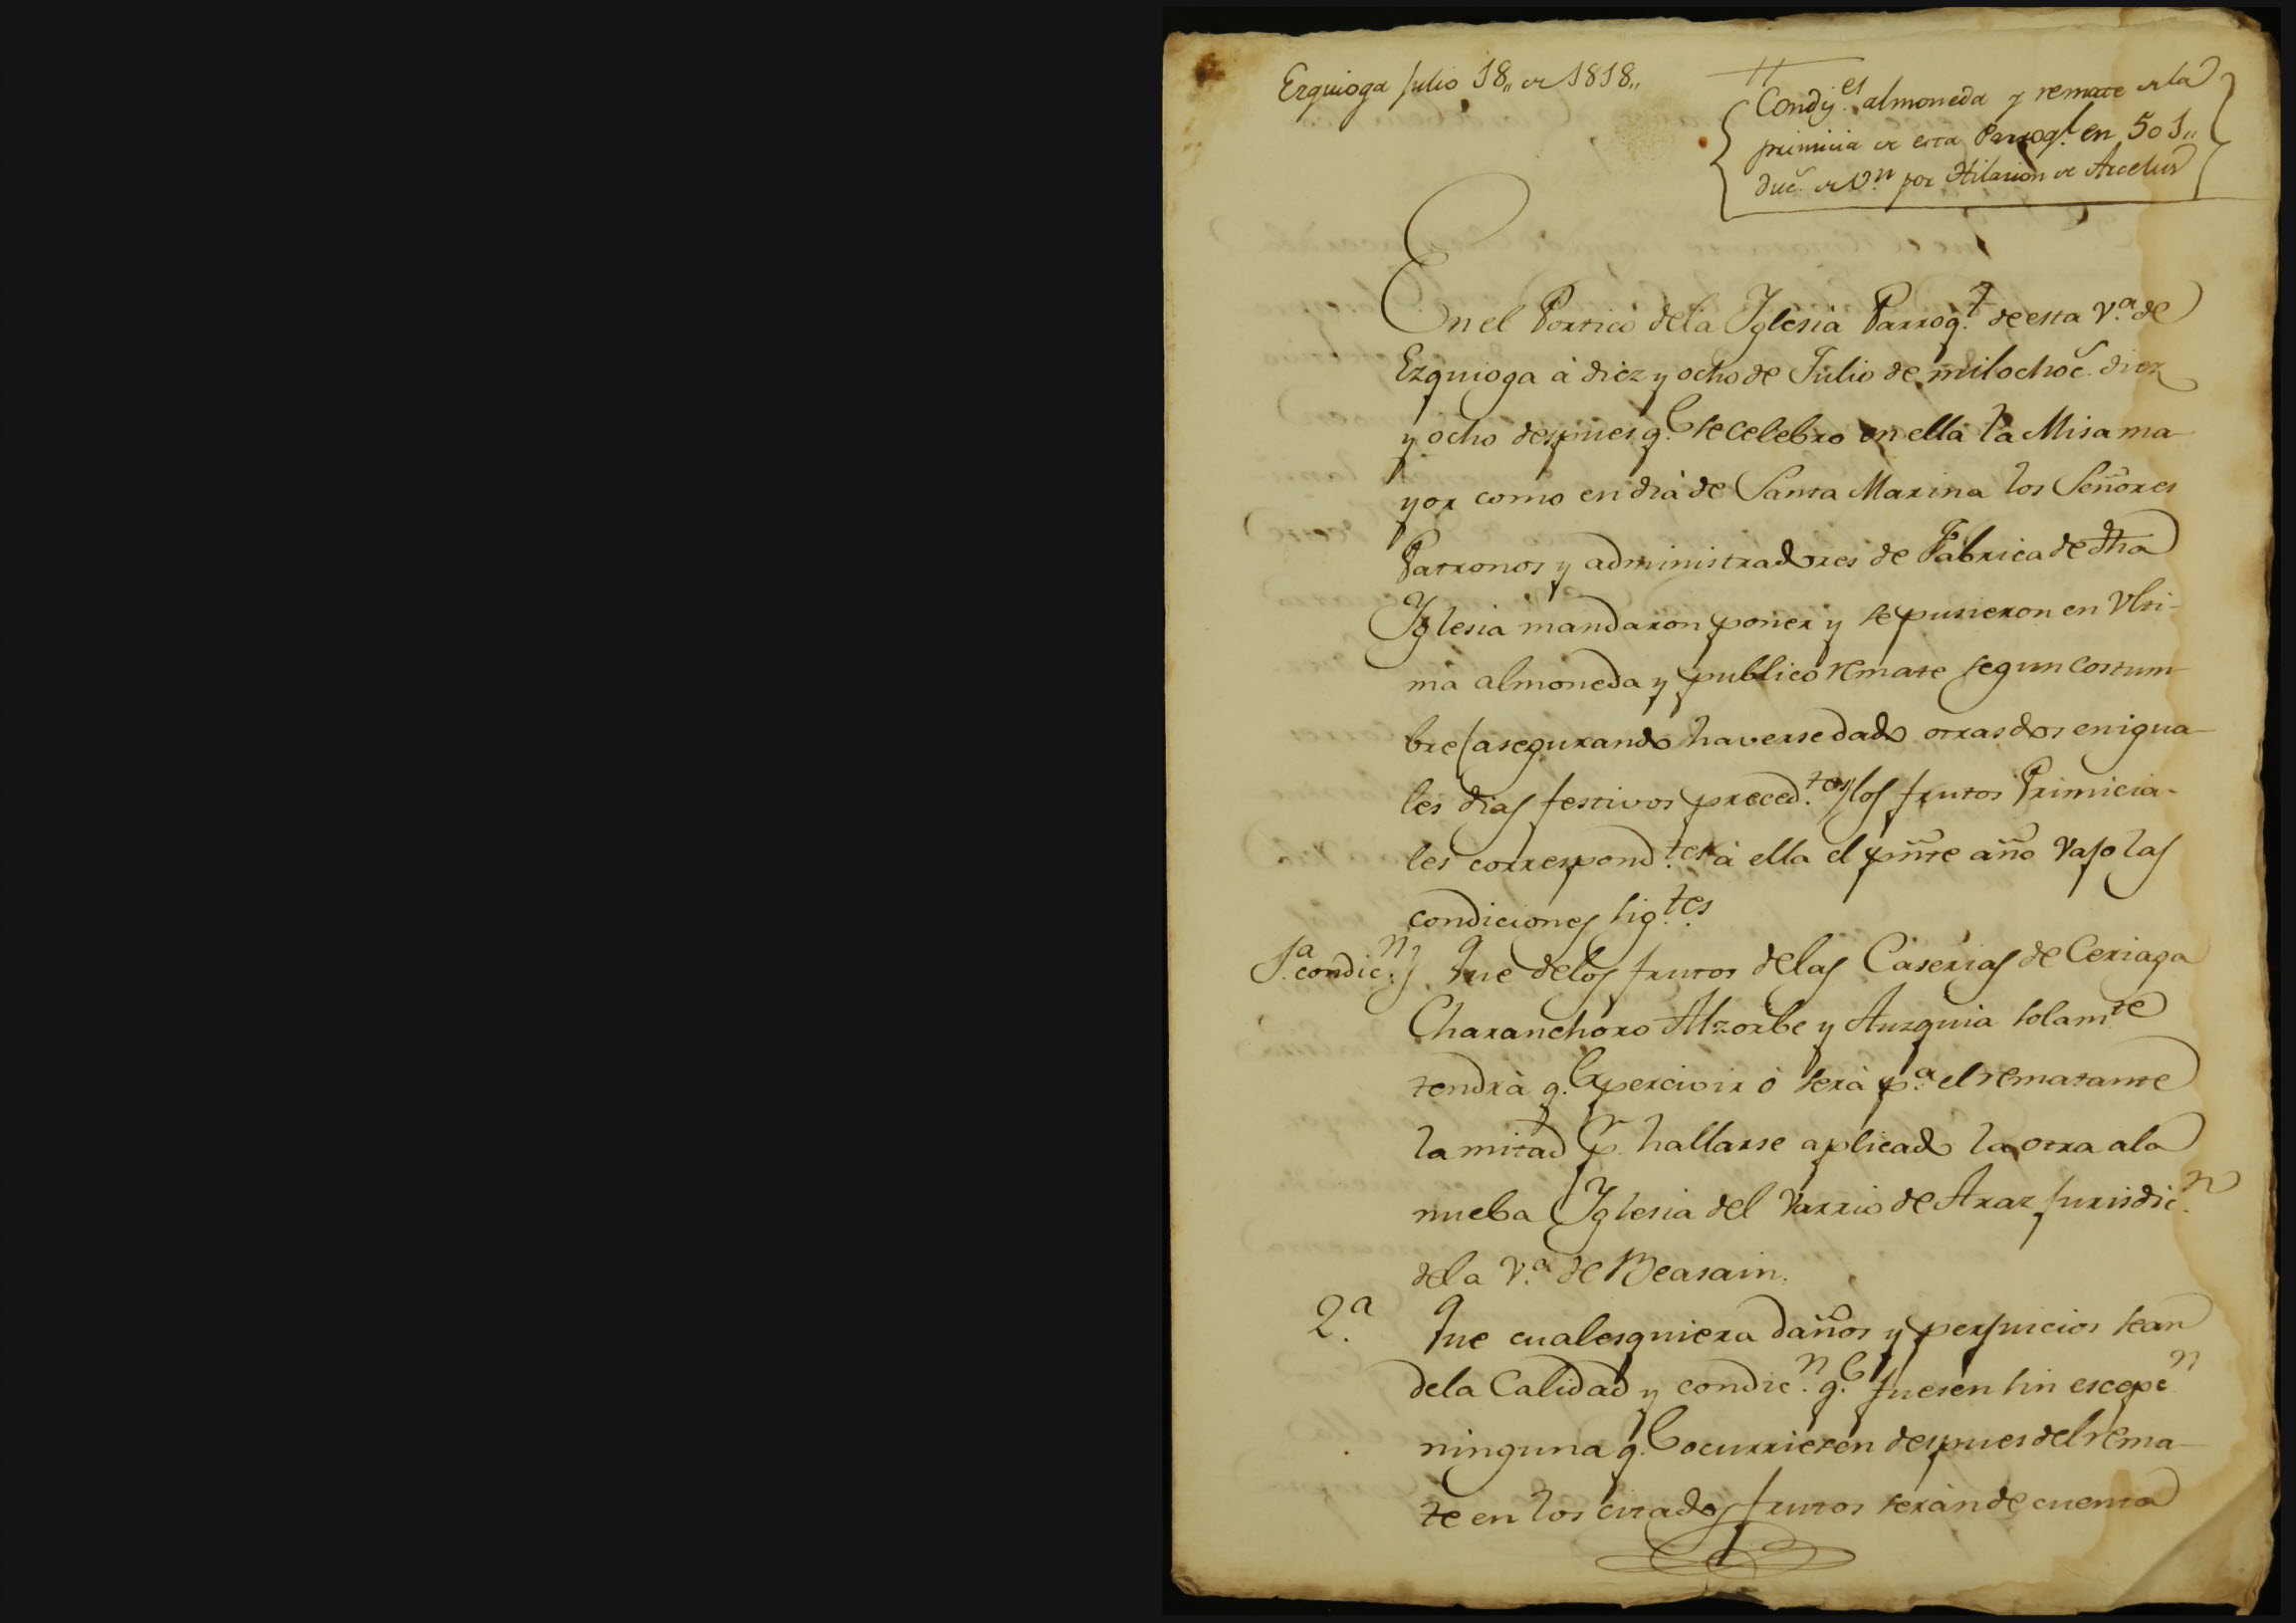 Ezquioga Julio 18,, de 1818,,
Condiz.es almoneda y remate de la
primicia de esta Parroq.l en 501,,
duc.s de V.n por Hilarion de Arcelus
En el Portico de la Yglesia Parroq.l de esta V.a de
Ezquioga à diez y ocho de Julio de mil ochoc.s diez
y ocho despues q.e se celebro en ella la Misa ma-
yor como en dia de Santa Marina los Señores
Patronos y administradores de Fabrica de dha
Yglesia mandaron poner y se pusieron en Vlti-
ma almoneda y publico remate segun costum-
bre (asegurando haverse dado otras dos en igua-
les dias festivos preced.tes) los frutos Primicia-
les correspond.tes à ella el pñte año vajo las
condiciones sig.tes
1.a condic.n Que de los frutos de las Caserias de Ceriaga
Charanchoro Alzorbe y Auzquia solam.te
tendrà q.e percivir ò serà p.a el rematante
la mitad p.r hallarse aplicado la otra a la
nueba Yglesia del Varrio de Araz Jurisdic.n
de la V.a de Beasain.
2.a Que cualesquiera daños y perjuicios sean
de la Calidad y condic.n q.e fuesen sin escepc.n
ninguna q.e ocurriesen despues del rema-
te en los citados frutos seràn de cuenta